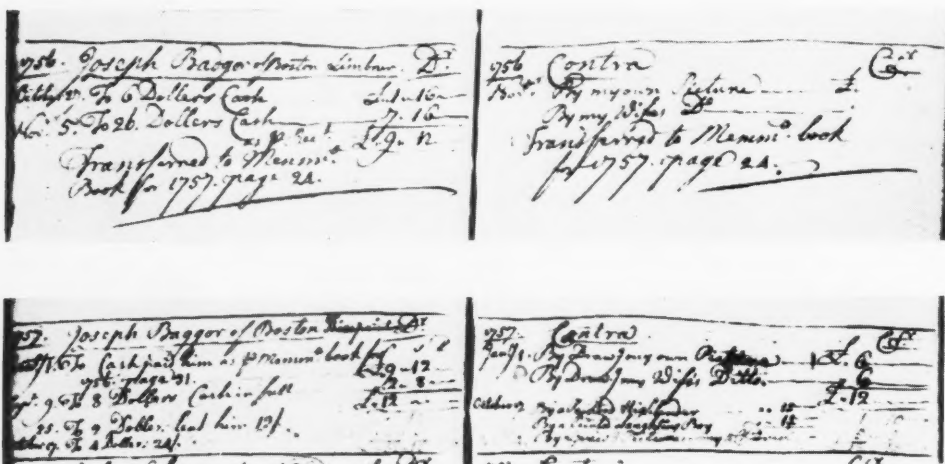 1756. Joseph Badger of Boston Limner. Dr
27. To 6 Dollars Cash £1-16-
Nov. 5. To 26. Dollers Cash 7. 16
as pr Rect. £9. 12
Transferred to Memmo.
Book for 1757. page 24.
1756 Contra Cr
By my own Picture £.
By my Wifes Do
Transferred to Memmo. book
for 1757. page 24.
1757. Joseph Baggor of Boston Dr
To Cash paid him as pr Memmo book for £9-12
1756. page 31. 2-8-
9 To 8 Dollers Cash in full £-12
25. To 2 Doller lent him 12/.
9. To 4 Doller. 24/.
1757. Contra Cr
1. By Draw.g my own Picture £.6
By Draw.g my Wifes Ditto 6
£.12
Highlander .. 15
Laughing Boy .. 14